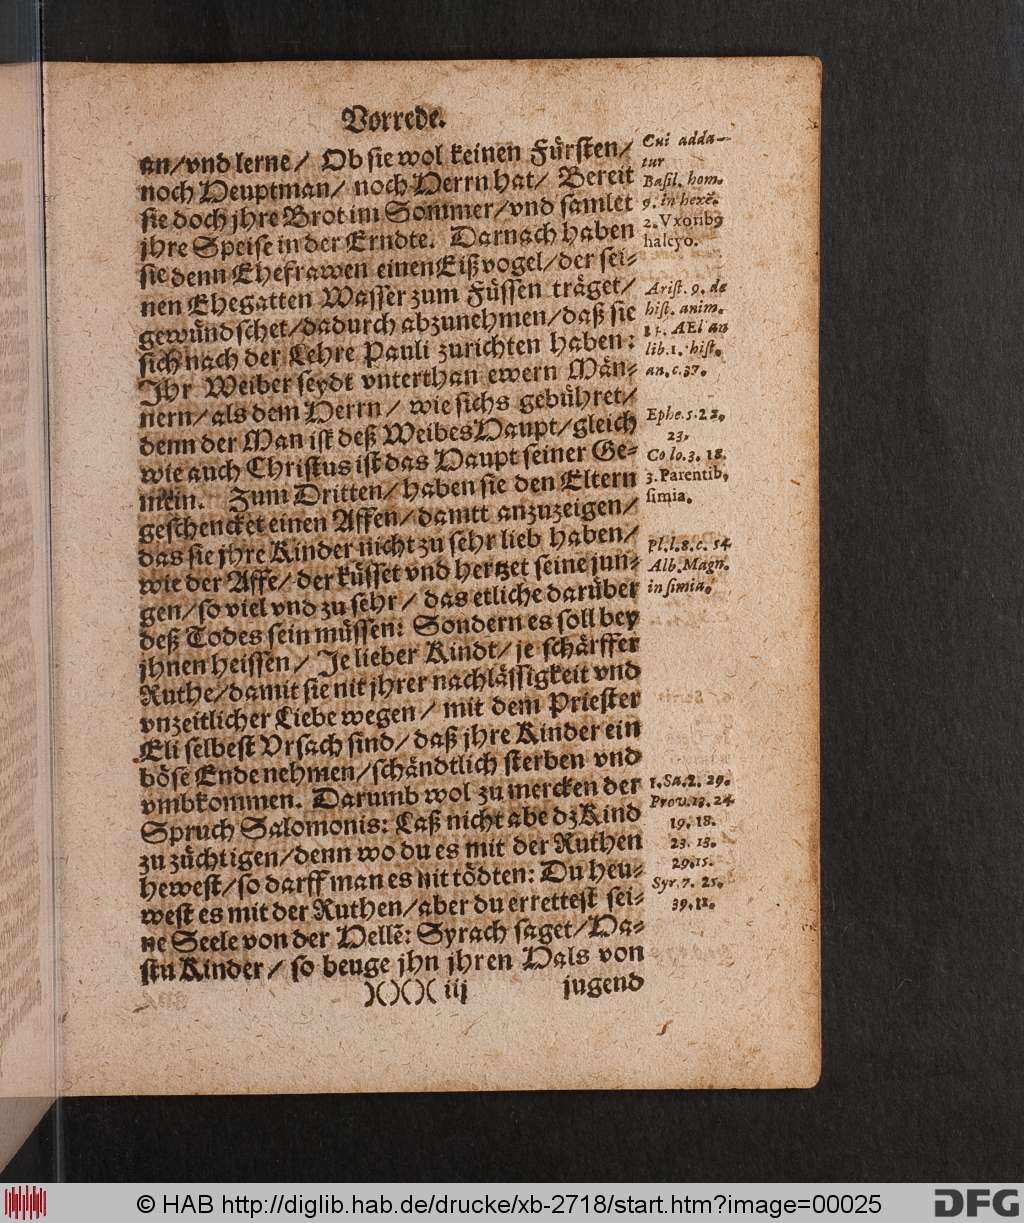 Vorrede.
an/vnd lerne/ Ob sie wol keinen Fürsten/
noch Heuptman/ noch Herrn hat/ Bereit
sie doch jhre Brot im Sommer/vnd samlet
jhre Speise in der Erndte. Darnach haben
sie denn Ehefrawen einen Eißvogel/der sei-
nen Ehegatten Wasser zum Füssen träget/
gewündschet/dadurch abzunehmen/daß sie
sich nach der Lehre Pauli zurichten haben:
Ihr Weiber seydt vnterthan ewern Män-
nern/als dem Herrn/ wie sichs gebühret/
denn der Man ist deß Weibes Haupt/gleich
wie auch Christus ist das Haupt seiner Ge-
mein. Zum Dritten/haben sie den Eltern
geschencket einen Affen/damit anzuzeigen/
das sie jhre Kinder nicht zu sehr lieb haben/
wie der Affe/der küsset vnd hertzet seine jun-
gen/so viel vnd zu sehr/ das etliche darüber
deß Todes sein müssen: Sondern es soll bey
jhnen heissen/ Je lieber Kindt/je schärffer
Ruthe/damit sie nit jhrer nachlässigkeit vnd
vnzeitlicher Liebe wegen/ mit dem Priester
Eli selbest Vrsach sind/daß jhre Kinder ein
böse Ende nehmen/schändtlich sterben vnd
vmbkommen. Darumb wol zu mercken der
Spruch Salomonis: Laß nicht abe dz Kind
zu züchtigen/denn wo du es mit der Ruthen
hewest/so darff man es nit tödten: Du heu-
west es mit der Ruthen/aber du errettest sei-
ne Seele von der Hellē: Syrach saget/Ha-
stu Kinder/ so beuge jhn jhren Hals von
)()()( iij jugend
Cui adda-
tur
Basil. hom.
9. in hexē.
2. Vxorib9
halcyo.
Arist. 9. de
hist. anim.
AEl an
lib.1. hist.
an.c.37.
Ephe.5.22.
23.
Colo.3.18.
3. Parentib,
simia.
Pl.l.8.c.54.
Alb. Magn.
in simia.
1.Sa.2.29.
Prov.13.24.
19.18.
23.13.
29.15.
Syr.7.25.
39.11.
© HAB http://diglib.hab.de/drucke/xb-2718/start.htm?image=00025
DFG